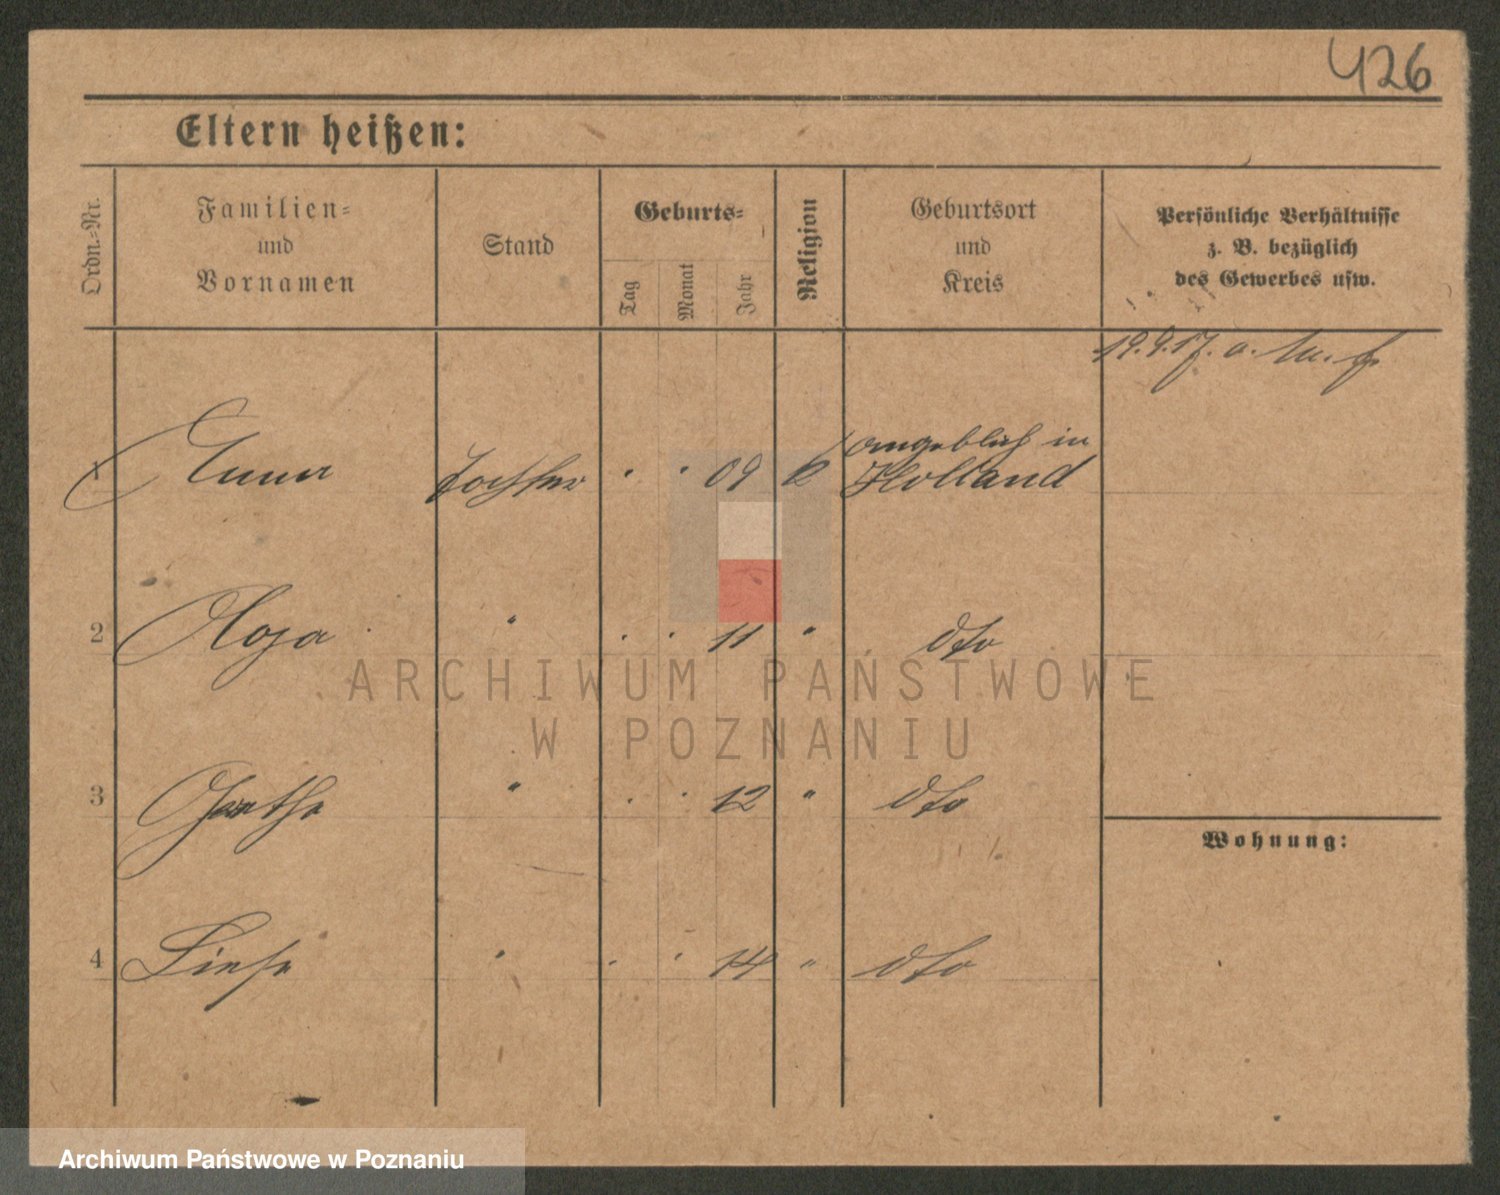 426
Eltern heißen:
Ordn.-Nr.
Familien-
und
Vornamen
Stand
Geburts-
Tag
Monat
Jahr
Religion
Geburtsort
und
Kreis
Persönliche Verhältnisse
z. B. bezüglich
des Gewerbes usw.
19.9.17.
angeblich in
1 Anna Tochter . . 09 k Holland
2 Roza " . . 11 " dto
3 Grethe " . . 12 " dto
Wohnung:
4 Liese " . . 14 " dto
ARCHIWUM PAŃSTWOWE
W POZNANIU
Archiwum Państwowe w Poznaniu